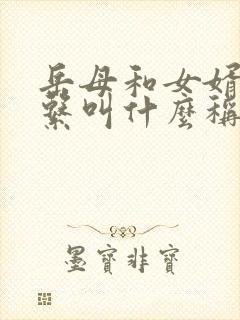 岳母和女婿
繫叫什麼稱
墨寶非寶